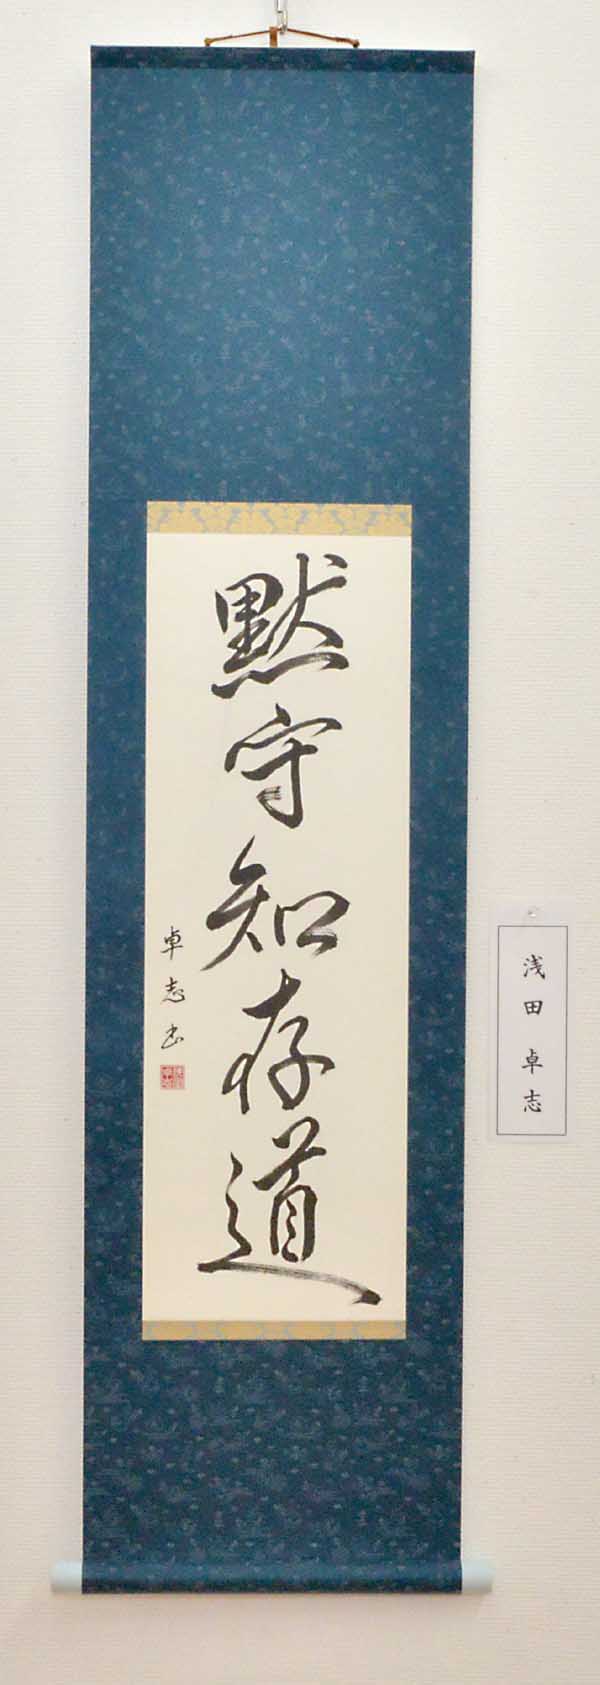 黙守知存道
卓志書
浅田 卓志